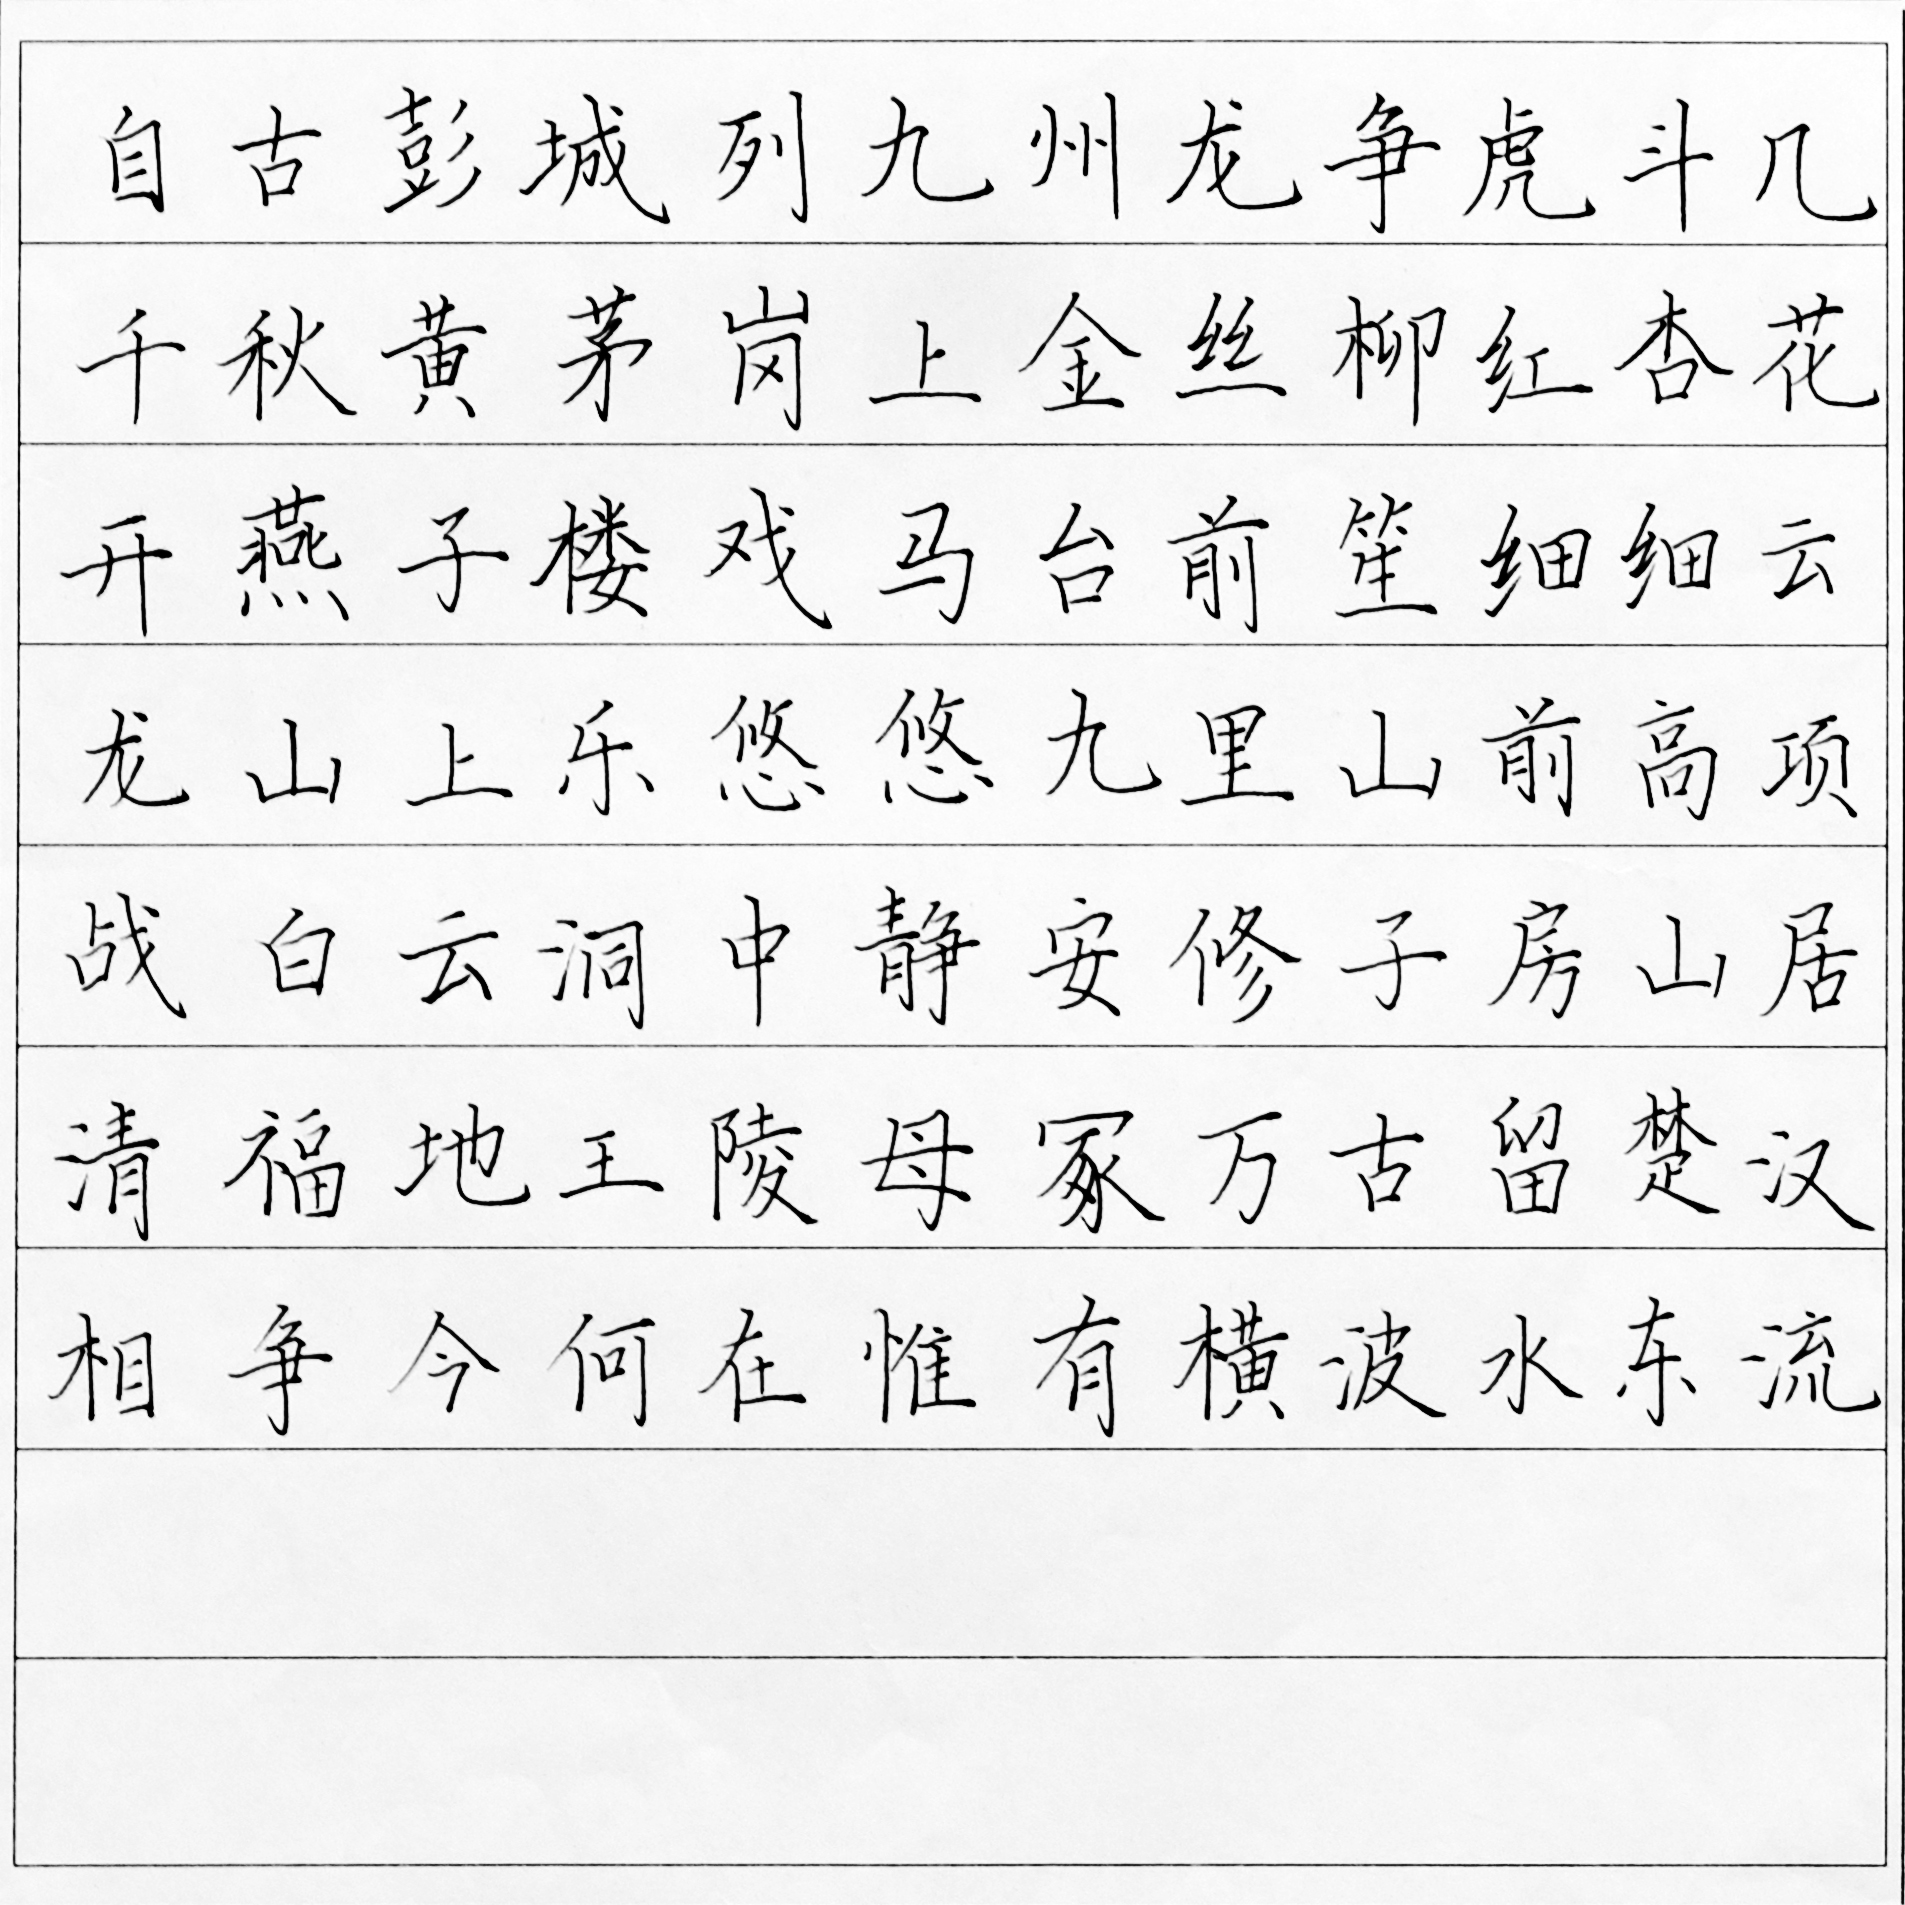 自古彭城列九州龙争虎斗几
千秋黄茅岗上金丝柳红杏花
开燕子楼戏马台前笙细细云
龙山上乐悠悠九里山前高项
战白云洞中静安修子房山居
清福地王陵母冢万古留楚汉
相争今何在惟有横波水东流